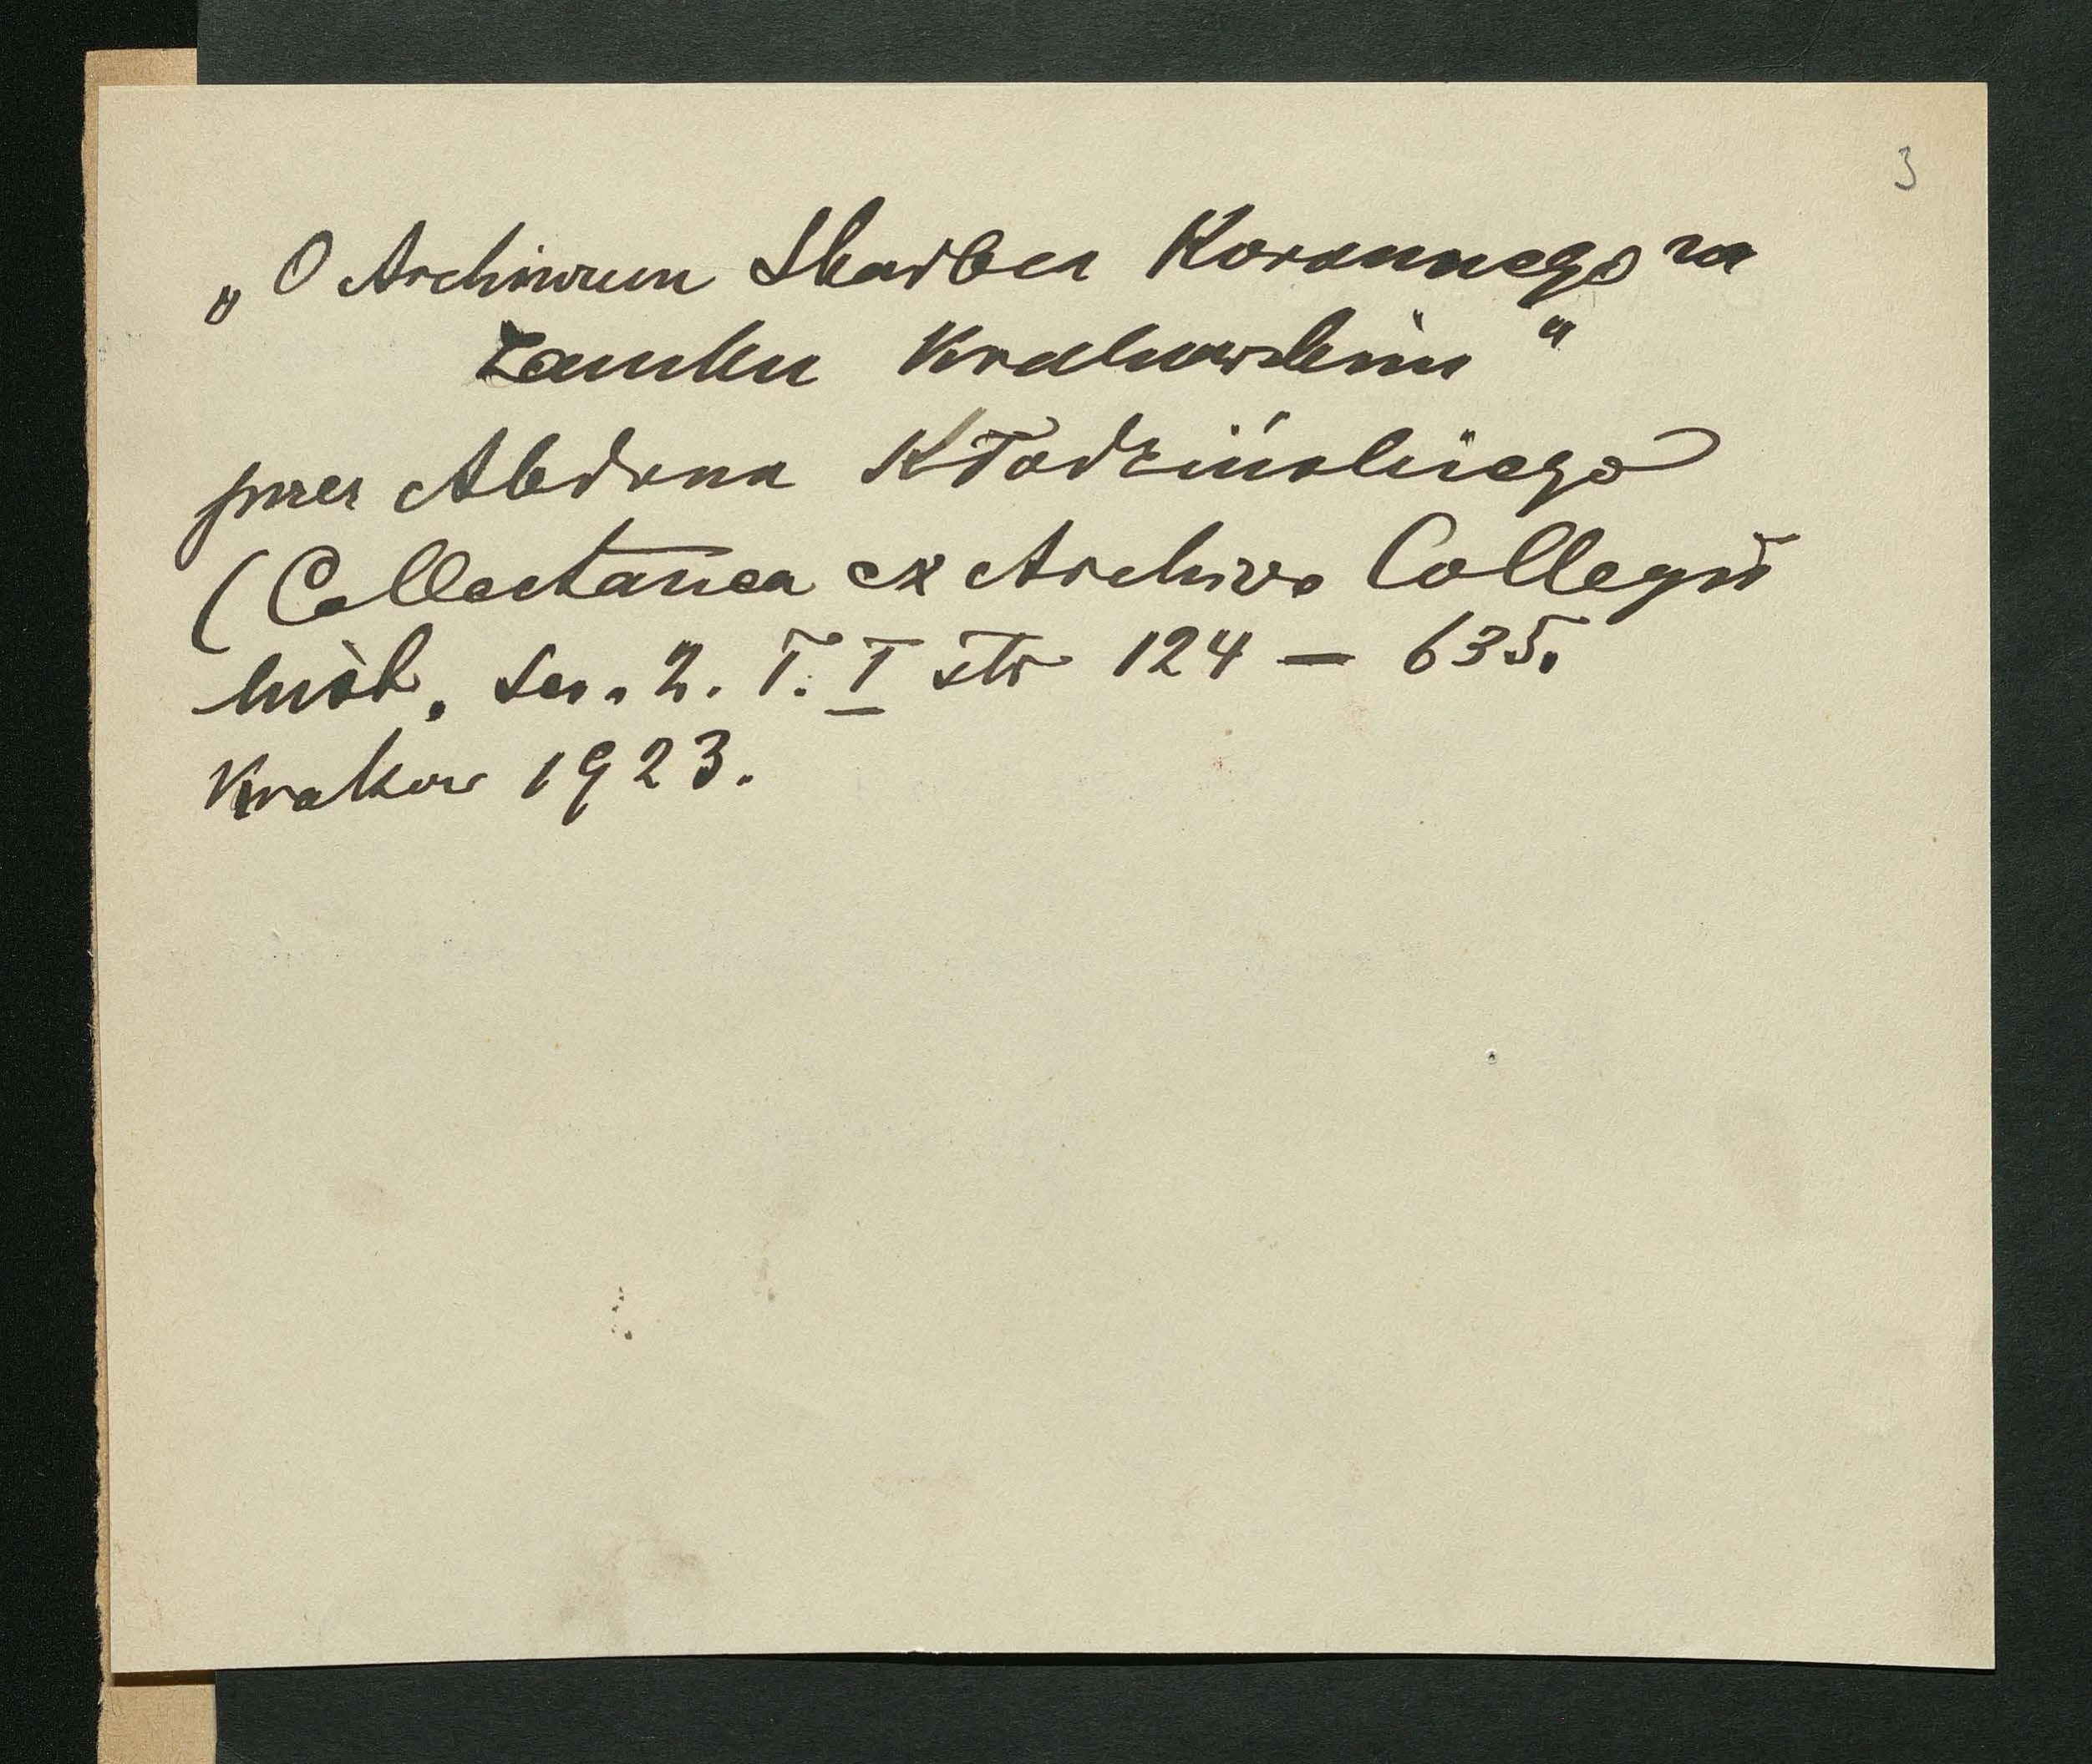 3
„O Archiwum Skarbca Koronnego na
zamku Krakowskim"
przez Abdona Kłodzińskiego
(Collectanea ex Archivo Collegii
hist. ser. 2. T. I str 124 — 635.
Krakow 1923.